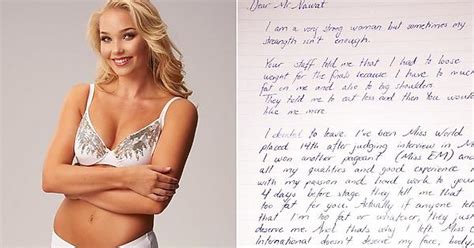 Dear Mr. Nawat
I am a very strong woman but sometimes my
strength isn't enough.
Your staff told me that I had to loose
weight for the finals because I have to much
fat on me and also to big shoulders.
They told me to eat less and then You would
like me more.
I decided to leave. I've been Miss World
placed 14th after judging interview in
I won another pageant (Miss EM) and
all my qualities and good experience
with my passion and hard work to your
4 days before stage they tell me that
too fat for you. Actually if anyone tell
that I'm too fat or whatever, they just
deserve me. And thats why I left. Miss
International doesn't deserve my face,